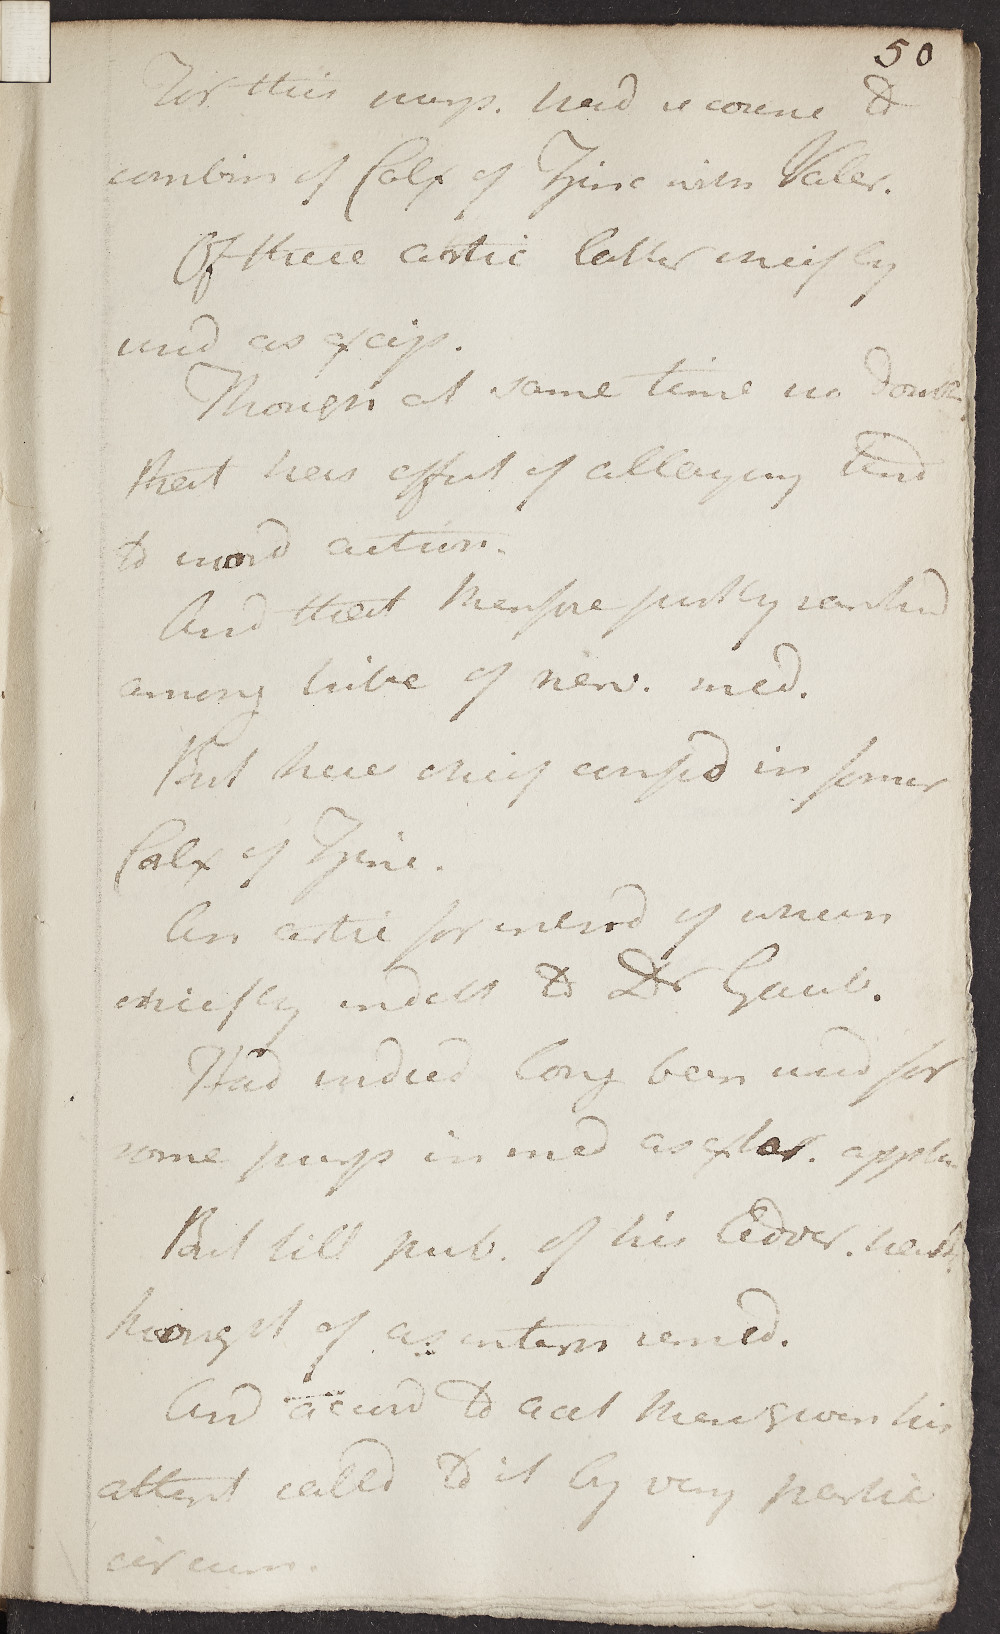 50
For this purp. had recourse to
combin of Calx of Zinc with Valer.
Of these artic latter chiefly
used as excip.
Though at same time no doubt
that has effect of allaying tend
to inord action.
And that therefore justly ranked
among tribe of nerv. med.
But here chief confid in former
Calx of Zinc.
An artic for introd of which
chiefly indebt to Dr Gaub.
Had indeed long been used for
some purp in med as exter. applic
But till pub. of his Adver.
thought of as intern remed.
And accord to acct there given his
attent called to it by very partic
circum.